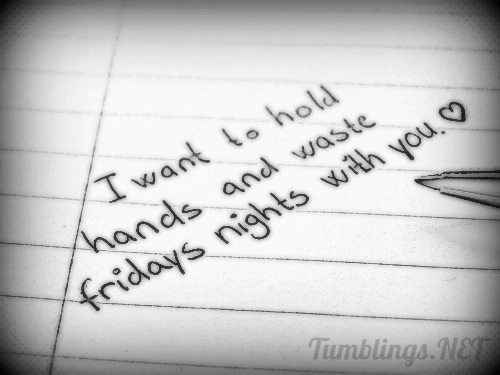 I want to hold
hands and waste
fridays nights with you.♡
Tumblings.NET